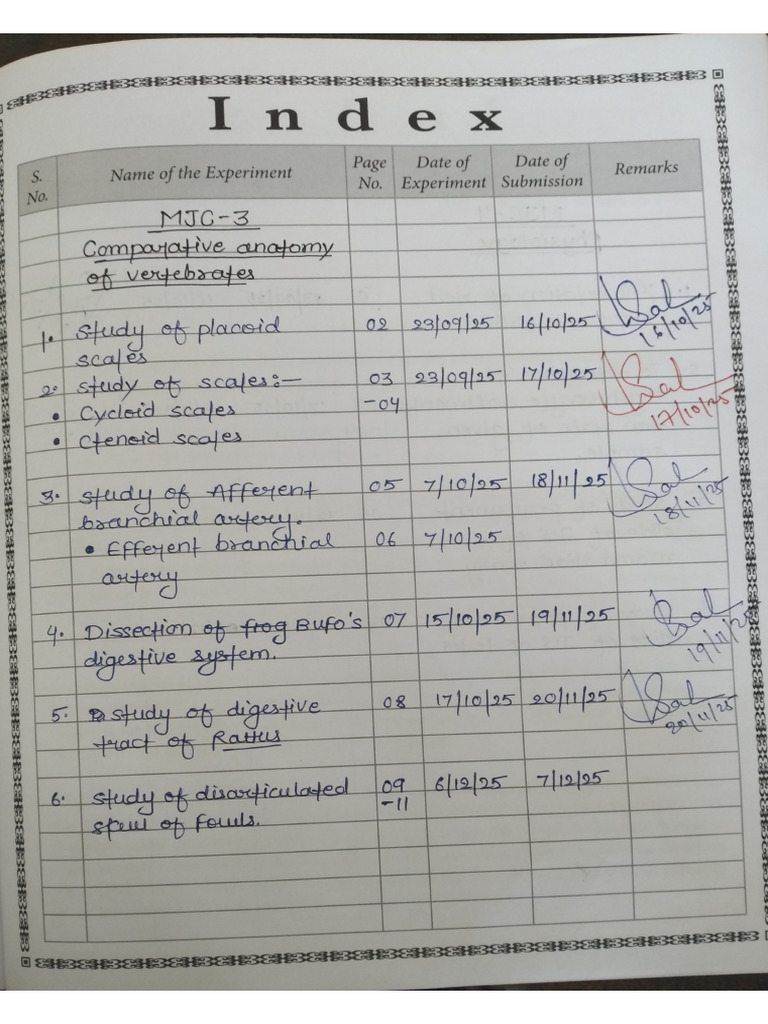 Index
S. No. Name of the Experiment Page No. Date of Experiment Date of Submission Remarks
MJC-3
Comparative anatomy
of vertebrates
1. Study of placoid 02 23/09/25 16/10/25 16/10/25
scales
2. Study of scales:— 03 23/09/25 17/10/25
• Cycloid scales -04 17/10/25
• Ctenoid scales
3. Study of Afferent 05 7/10/25 18/11/25 18/11/25
branchial artery.
• Efferent branchial 06 7/10/25
artery
4. Dissection of frog Bufo's 07 15/10/25 19/11/25 19/11/25
digestive system.
5. study of digestive 08 17/10/25 20/11/25 20/11/25
tract of Rattus
6. Study of disarticulated 09 6/12/25 7/12/25
of Fowls. -11